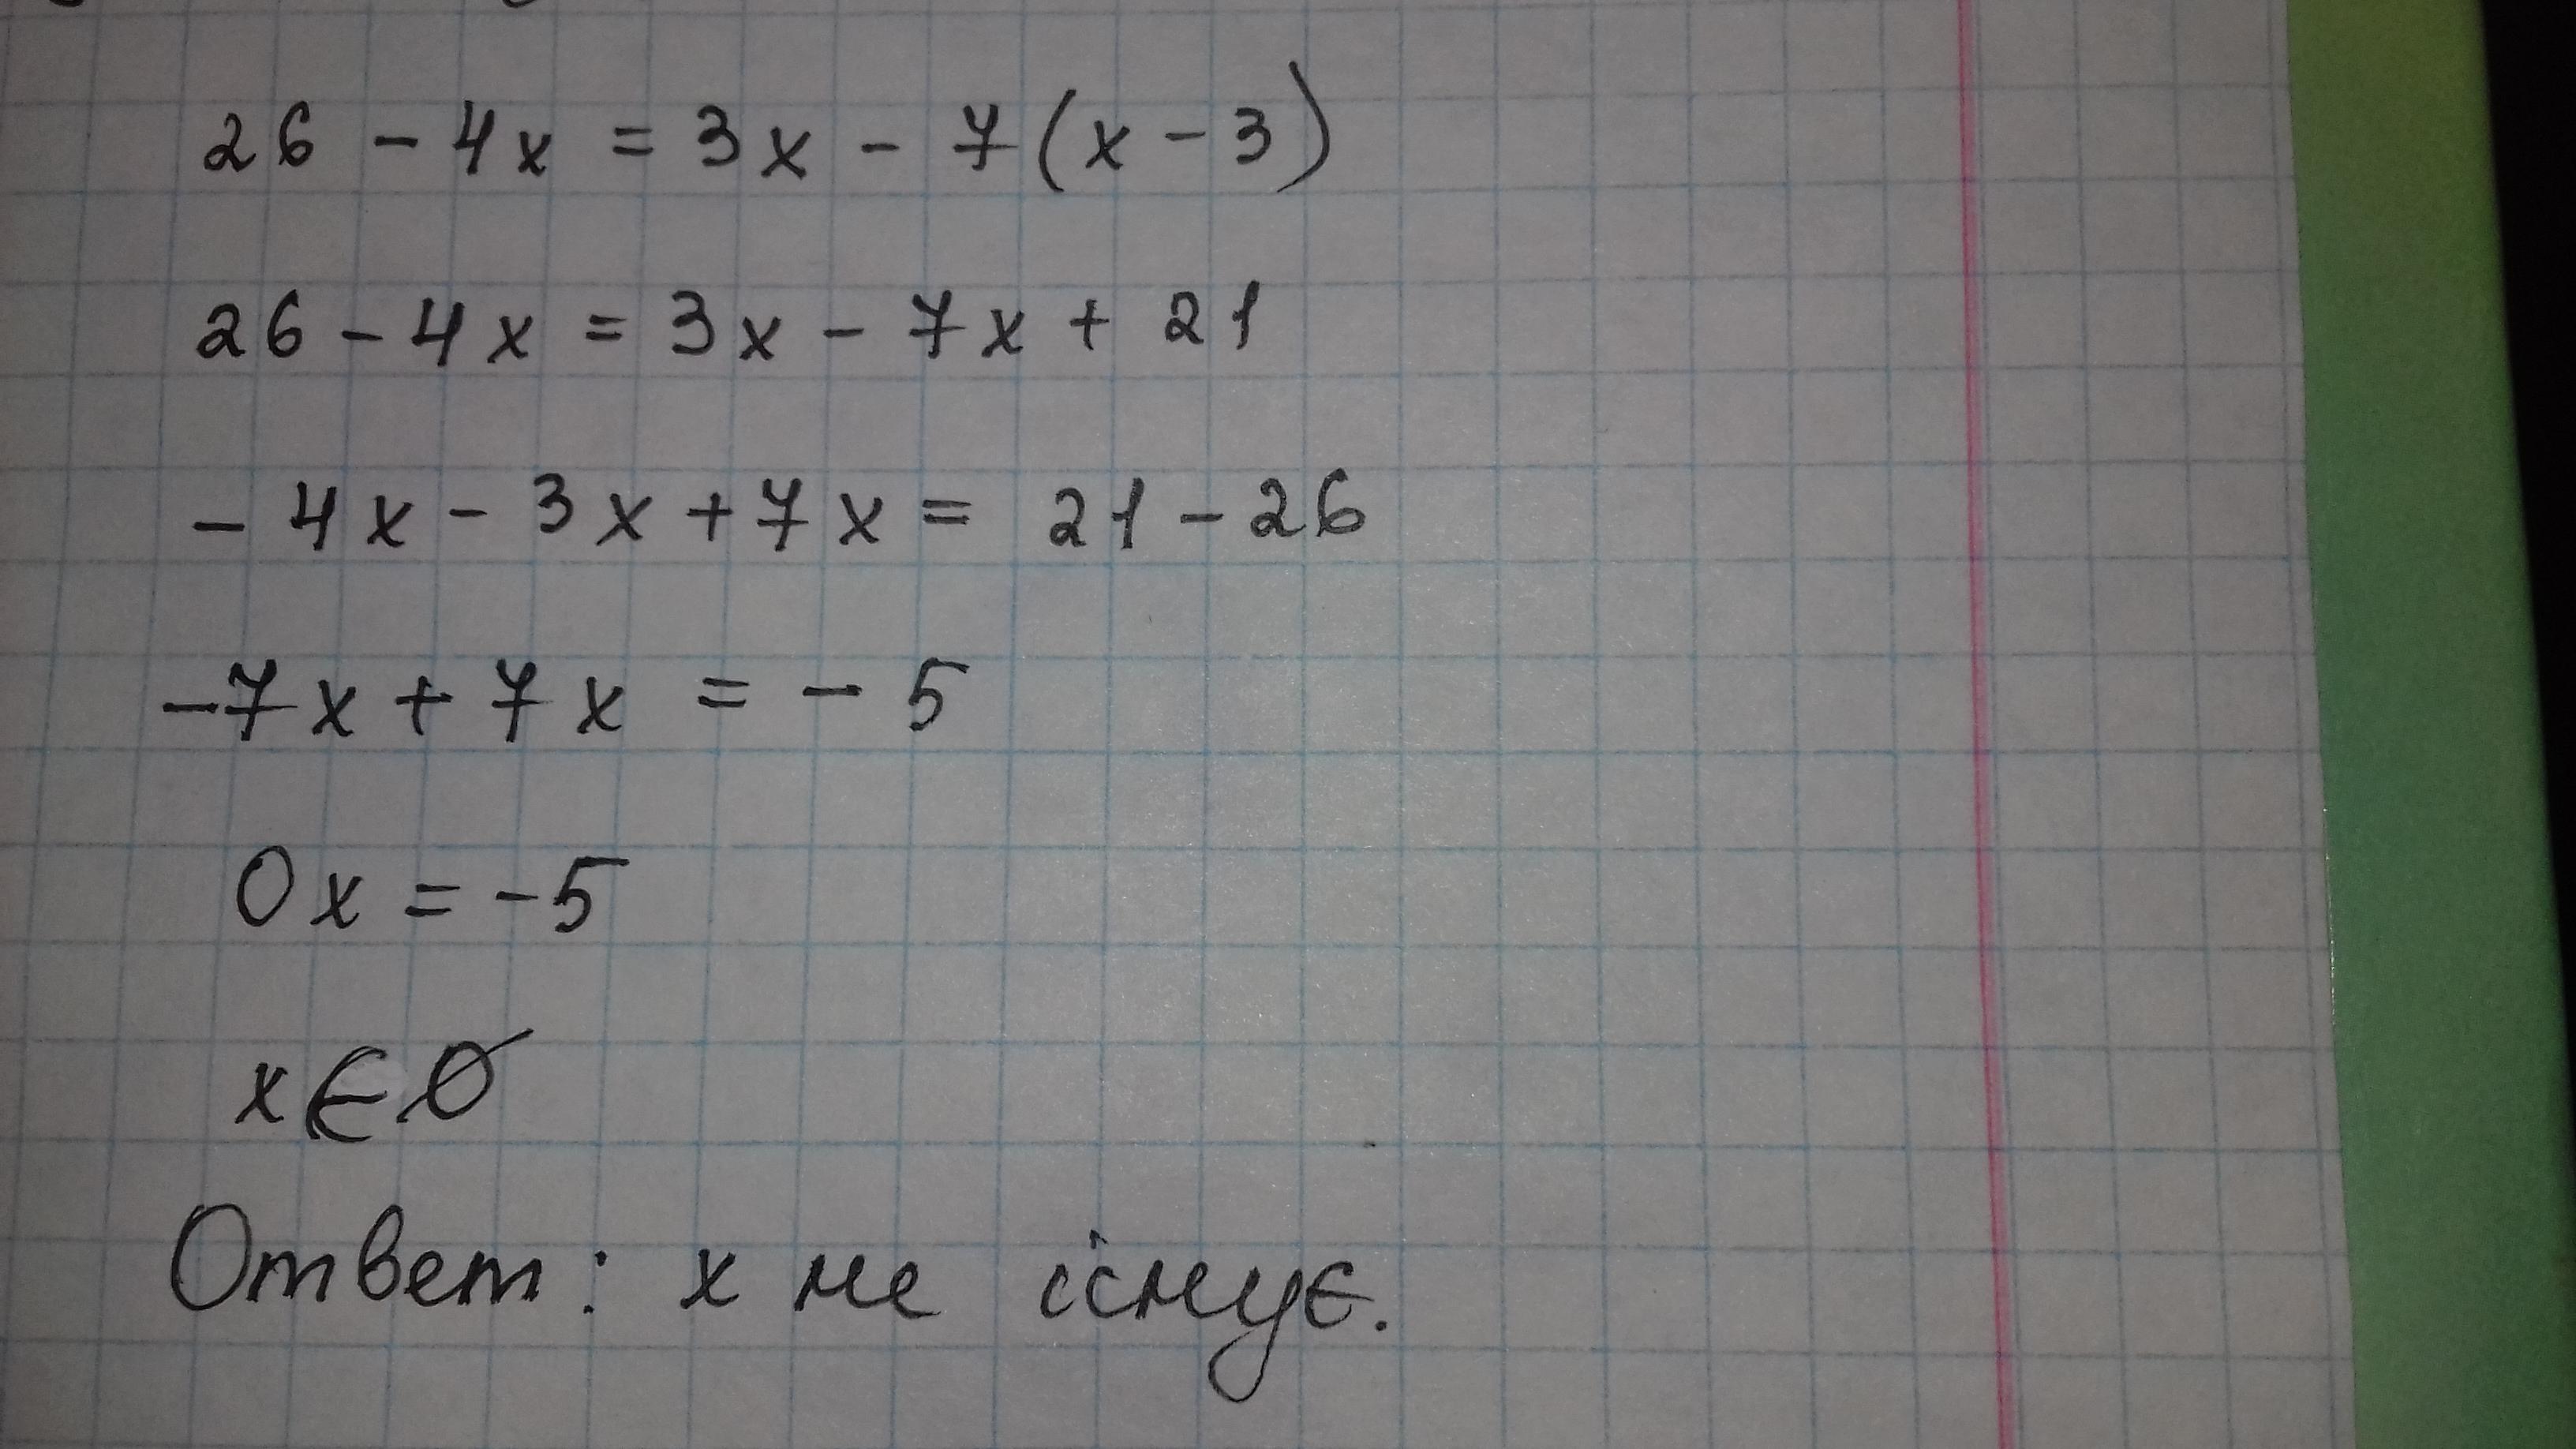 26 - 4x = 3x - 7(x - 3)
26 - 4x = 3x - 7x + 21
- 4x - 3x + 7x = 21 - 26
-7x + 7x = - 5
0x = -5
x ∈ ∅
Ответ: x не існує.